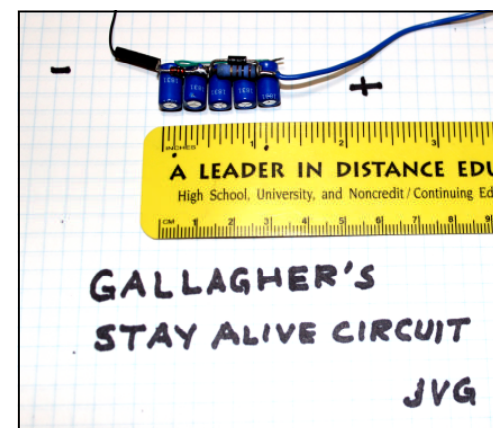 - +
INCHES 1 2 3
A LEADER IN DISTANCE EDU
High School, University, and Noncredit/Continuing Ed
CM 1 2 3 4 5 6 7 8 9
GALLAGHER'S
STAY ALIVE CIRCUIT
JVG